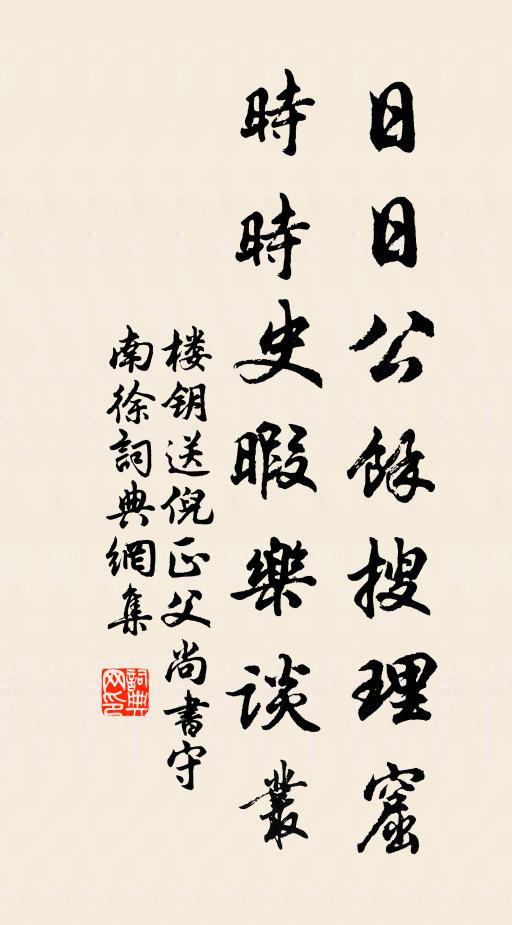 日日公餘搜理窟
時時史暇樂談叢
楼钥送倪正父尚書守
南徐詞典網集
詞典网印